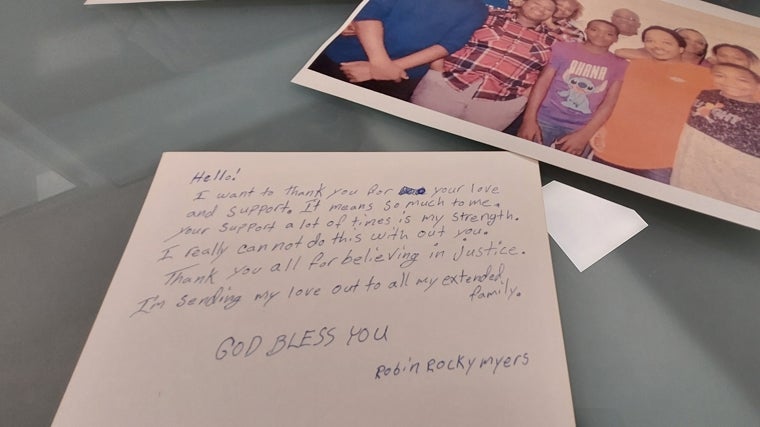 Hello!
I want to thank you for your love
and support. It means so much to me.
your support a lot of times is my strength.
I really can not do this with out you.
Thank you all for believing in justice.
I'm sending my love out to all my extended
family.
GOD BLESS YOU
Robin Rocky Myers
OHANA